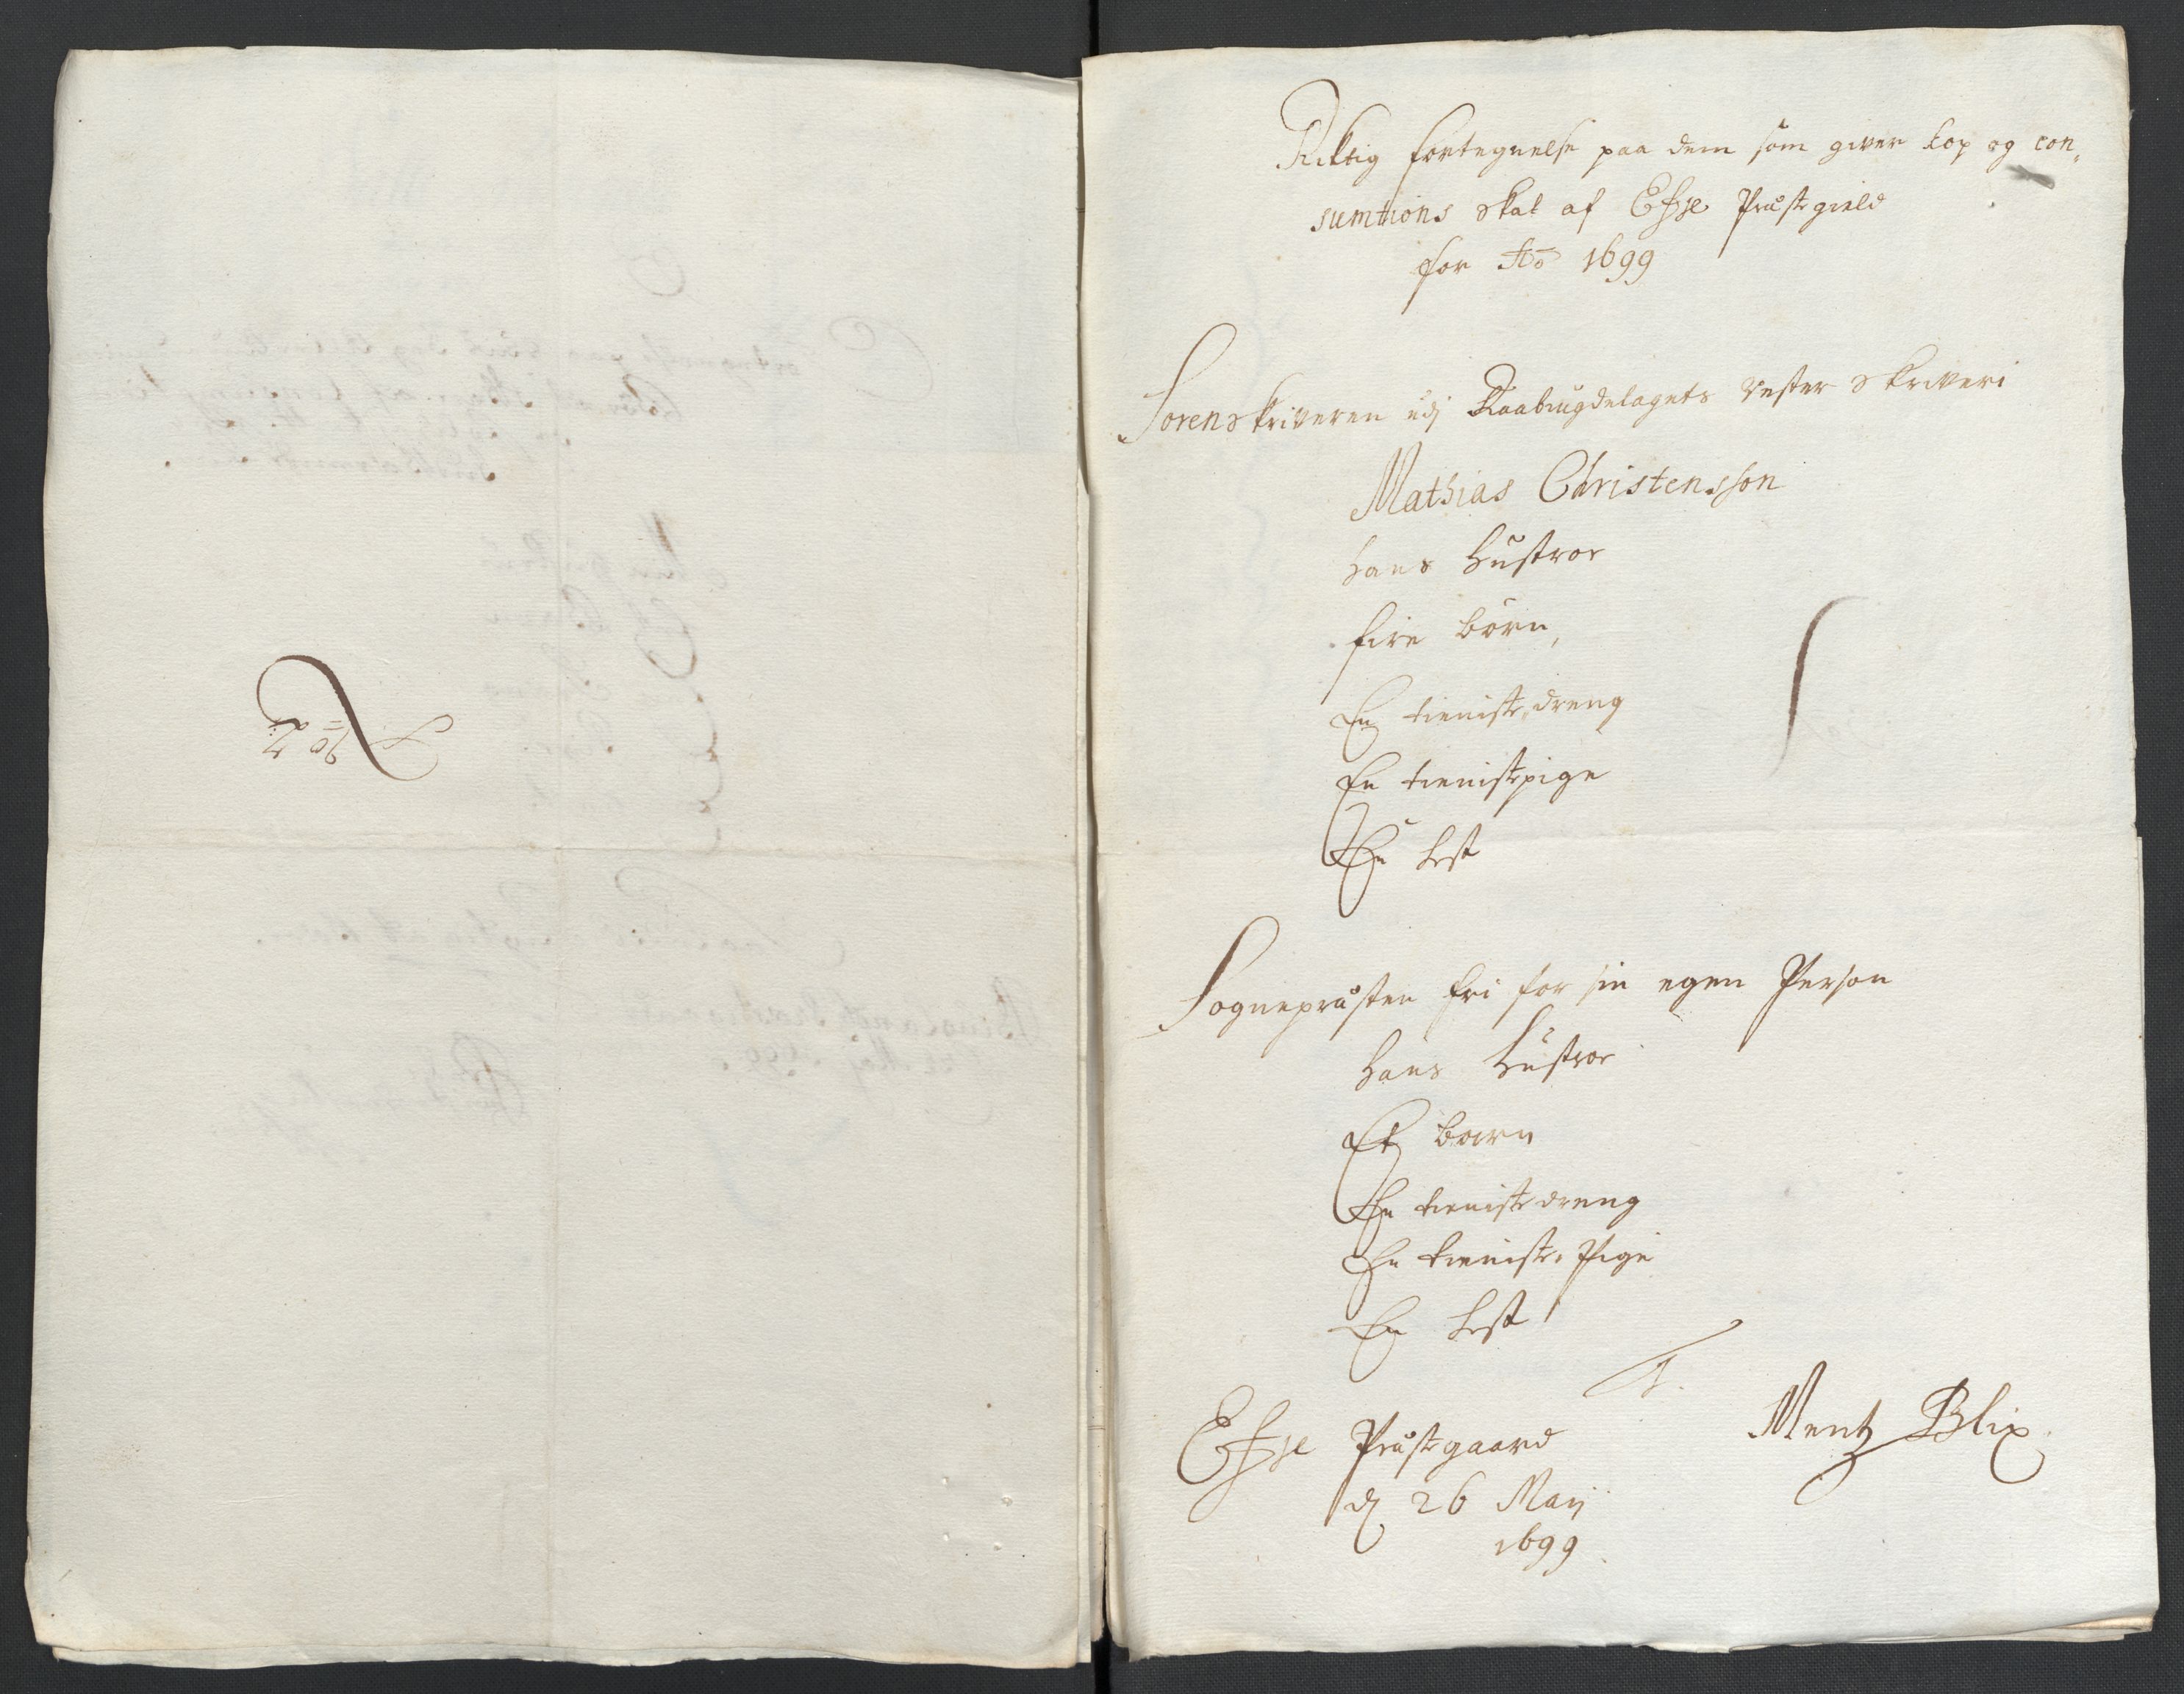 Riktig fortegnelse paa dem som giver kop og con„
sumtions skat af Efsse Præstegield
for Ao 1699
Sorenskriveren udj Raabugdelagets Vester skriveri
Mathias Christensson
hans Hustroe
fire børn,
En tieniste dreng
En tienistepige
En hest
Sognepræsten fri for sin egen Person
hans Hustroe
Et barn
En tieniste dreng
En tieniste Pige
En hest
Efsse Præstegaard
d 26 Maij
1699
Mentz Blix